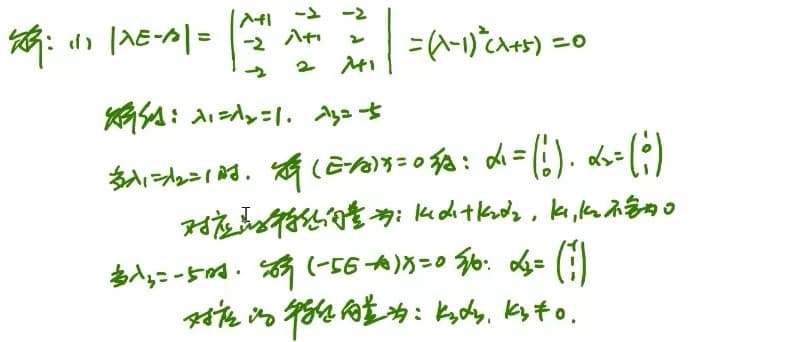 解：(1) |λE-A| = |λ+1 -2 -2; -2 λ+1 2; -2 2 λ+1| = (λ-1)²(λ+5) = 0
解得：λ₁=λ₂=1. λ₃=-5
当λ₁=λ₂=1时. 解 (E-A)x=0 得：α₁=(1 1 0). α₂=(1 0 1)
对应的特征向量为：k₁α₁+k₂α₂, k₁,k₂不全为0
当λ₃=-5时. 解 (-5E-A)x=0 得：α₃=(-1 1 1)
对应的特征向量为：k₃α₃, k₃≠0.